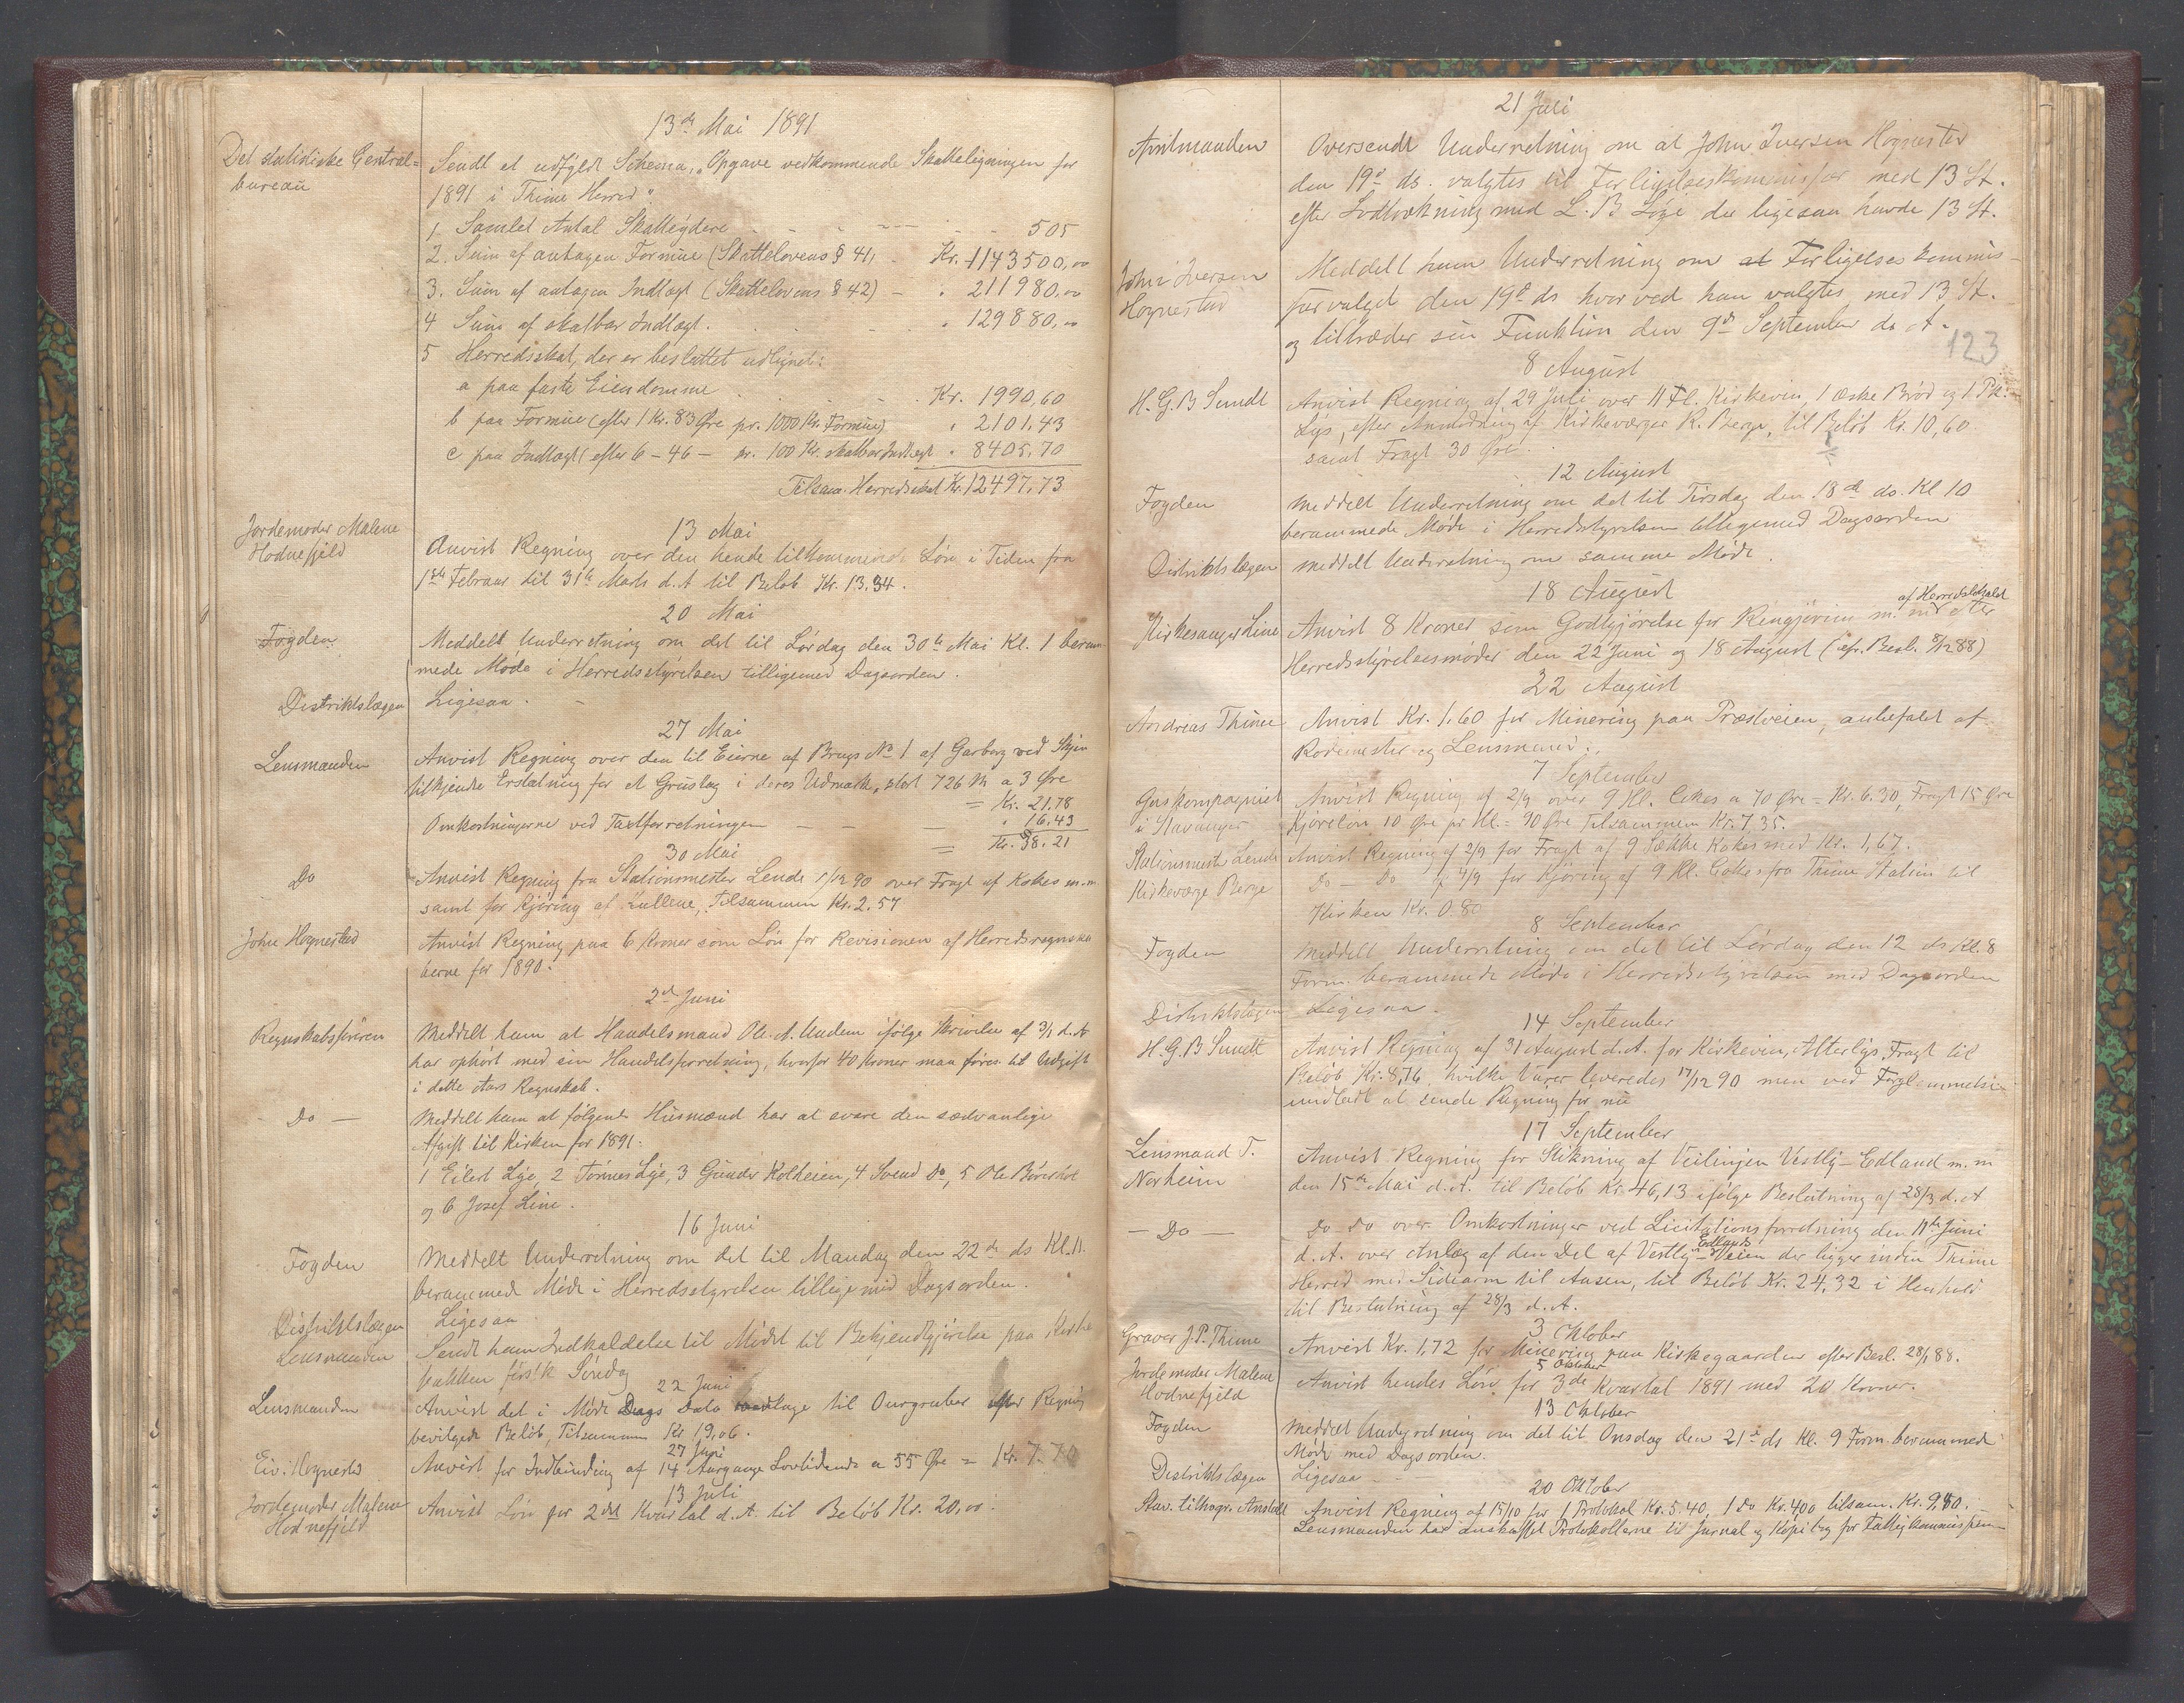 13de Mai 1891
Det statistiske Central=
bureau
Sendt et udfyldt Schema, "Opgave vedkommende Skatteligningen for
1891 i Thime Herred".
1 Samlet Antal Skatteydere 505
2. Sum af antagen Formue (Skattelovens § 41) Kr. 1143500,00
3. Sum af antagen Indtægt (Skattelovens § 42) - " 211980,00
4 Sum af skatbar Indtægt. " 129880,00
5 Herredsskat, der er besluttet udlignet:
a paa faste Eiendomme Kr. 1990,60
b paa Formue (efter 1 Kr. 83 Øre pr. 1000 Kr. Formue) " 2101,43
c paa Indtægt (efter 6 - 46 - pr. 100 Kr. skatbar Indtægt " 8405,70
Tilsam. Herredsskat Kr. 12497,73
13 Mai
Jordemoder Malene
Hodnefjeld
Anvist Regning over den hende tilkommende Løn i Tiden fra
1ste Februar til 31te Marts d. A til Beløb Kr. 13.34.
20 Mai
Fogden
Meddelt Underretning om det til Lørdag den 30te Mai Kl. 1 beram-
mede Møde i Herredsstyrelsen tilligemed Dagsorden.
Distriktslægen Ligesaa.
27 Mai
Lensmanden
Anvist Regning over den til Eierne af Brugs No 1 af Garborg ved Skjøn
tilkjendte Erstatning for et Grustag i deres Udmark, stort 726 M a 3 Øre
= Kr. 21.78
Omkostningerne ved Taxtforretningen - " 16,43
= Kr. 38.21
30 Mai
Do Anvist Regning fra Stationsmester Lende 1/12 90 over Fragt af Kokes m.m.
samt for Kjøring af Kullene, Tilsammen Kr. 2.57
John Hognestad Anvist Regning paa 6 Kroner som Løn for Revisionen af Herredsregnska
berne for 1890.
2den Juni
Regnskabsføreren Meddelt ham at Handelsmand Ole A. Undem ifølge Skrivelse af 3/1 d. A
har ophørt med sin Handelsforretning, hvorfor 40 Kroner maa føres til Udgift
i dette Aars Regnskab.
Do - Meddelt ham at følgende Husmænd har at svare den sædvanlige
Afgift til Kirken for 1891.
1 Eilert Lye, 2 Tørnes Lye, 3 Gunder Kolheien, 4 Svend Do, 5 Ole
og 6 Josef Line.
16 Juni
Fogden Meddelt Underretning om det til Mandag den 22de ds Kl. 11
berammede Møde i Herredsstyrelsen tilligemed Dagsorden.
Distriktslægen Ligesaa
Lensmanden Sendt ham Indkaldelse til Mødet til Bekjendtgjørelse paa Kirke
bakken først k Søndag
22 Juni
Lensmanden Anvist det i Møde Dags Dato til efter Regning
bevilgede Beløb, Tilsammen Kr 19,06.
27 Juni
Eiv. Hognestad Anvist for Indbinding af 14 Aargange Lovtidende a 55 Øre = Kr. 7.70
13 Juli
Jordemoder Malene
Hodnefjeld
Anvist Løn for 2det Kvartal d. A. til Beløb Kr. 20,00.
21 Juli
Amtmanden Oversendt Underretning om at John Iversen Hognestad
den 19de ds. valgtes til Forligelseskommissær med 13 St.
efter Lodtrækning med L. B Lye der ligesaa havde 13 St.
John Iversen
Hognestad
Meddelt ham Underretning om at Forligelseskommis-
færvalget den 19de ds hvorved han valgtes med 13 St.
og tiltræder sin Funktion den 9de September d. A.
123
8 August
H. G. B Sundt Anvist Regning af 29 Juli over 11 Fl. Kirkevin, 1 æske Brød og 1 Pk.
Lys, efter Anmodning af Kirkeværger R. Berge, til Beløb Kr. 10,60.
samt Fragt 30 Øre.
12 August
Fogden Meddelt Underretning om det til Tirsdag den 18de ds. Kl 10
berammede Møde i Herredsstyrelsen tilligemed Dagsorden
Distriktslægen Meddelt Underretning om samme Møde.
18 August
Kirkesanger Line Anvist 8 Kroner som Godtgjørelse for Rengjøring m. m. af Herredslokalet efter
Herredsstyrelsesmøder den 22 Juni og 18 August (efr. Besl. 8/12 88)
22 August
Andreas Thime Anvist Kr. 1.60 for Minering paa Præstveien, anbefalet af
Rodemester og Lensmand.
7 September
Gaskompagniet
i Stavanger
Anvist Regning af 2/9 over 9 Hl. Cokes a 70 Øre = Kr. 6.30, Fragt 15 Øre
Kjøreløn 10 Øre pr Hl. = 90 Øre Tilsammen Kr. 7,35.
Stationsmester Lende Anvist Regning af 2/9 for Fragt af 9 Sække Kokes med Kr. 1,67.
Kirkeværge Berge Do - Do af 4/9 for Kjøring af 9 Hl. Cokes fra Thime Station til
Kirken Kr. 0.80
8 September
Fogden Meddelt Underretning om det til Lørdag den 12 ds Kl. 8
Form. berammede Møde i Herredsstyrelsen med Dagsorden
Distriktslægen Ligesaa.
14 September
H. G. B Sundt Anvist Regning af 31 August d. A. for Kirkevin, Alterlys, Fragt til
Beløb Kr. 8,76, hvilke Varer leveredes 17/12 90 men ved Forglemmelse
undladt at sende Regning før nu
17 September
Lensmand T.
Norheim
Anvist Regning for Stikning af Veilinjen Vestly - Edland m. m
den 15de Mai d. A. til Beløb Kr. 46,13 ifølge Beslutning af 28/3 d. A
- Do - Do Do over Omkostninger ved Licitationsforretning den 11te Juni
d. A. over Anlæg af den Del af Vestly - Edlands Veien der ligger inden Thime
Herred med Sidearm til Aasen, til Beløb Kr. 24,32 i Henhold
til Beslutning af 28/3 d. A.
3 Oktober
Graver J. P. Thime Anvist Kr. 1,72 for Minering paa Kirkegaarden efter Besl. 28/1 88.
5 Oktober
Jordemoder Malene
Hodnefjeld
Anvist hendes Løn for 3de Kvartal 1891 med 20 Kroner.
13 Oktober
Fogden Meddelt Underretning om det til Onsdag den 21de ds Kl. 9 Form. berammede
Møde med Dagsorden.
Distriktslægen Ligesaa -
20 Oktober
Stav. lithogr. Anstalt Anvist Regning af 15/10 for 1 Protokol Kr. 5.40, 1 Do Kr. 4,00 tilsam. Kr. 9,40.
Lensmanden har anskaffet Protokollerne til Jurnal og Kopibog for Fattigkommissionen